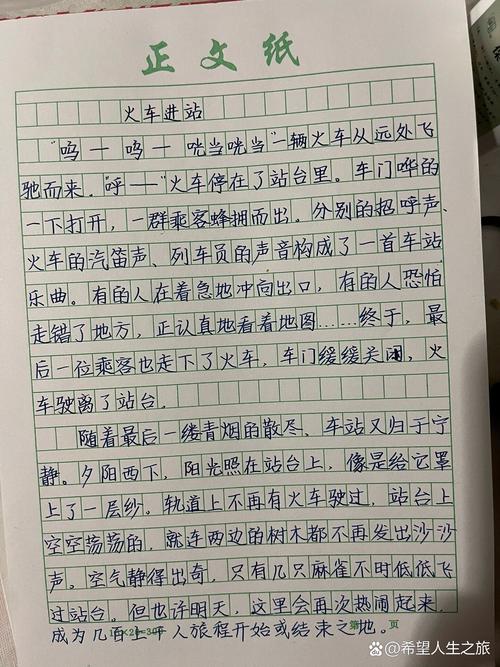 正文纸
火车进站
"呜一呜一咣当咣当"一辆火车从远处飞
驰而来.“呼——”火车停在了站台里。车门哗的
一下打开，一群乘客蜂拥而出。分别的招呼声、
火车的汽笛声、列车员的声音构成了一首车站
乐曲。有的人在着急地冲向出口，有的人恐怕
走错了地方，正认真地看着地图……终于，最
后一位乘客也走下了火车，车门缓缓关闭，火
车驶离了站台.
随着最后一缕青烟的散尽、车站又归于宁
静。夕阳西下，阳光照在站台上，像是给它罩
上了一层纱。轨道上不再有火车驶过，站台上
空空荡荡的，就连两边的树木都不再发出沙沙
声。空气静得出奇，只有几只麻雀不时低低飞
过站台。但也许明天，这里会再次热闹起来，
成为几百 人旅程开始或结束之地。
15×20=300
第 页
@希望人生之旅